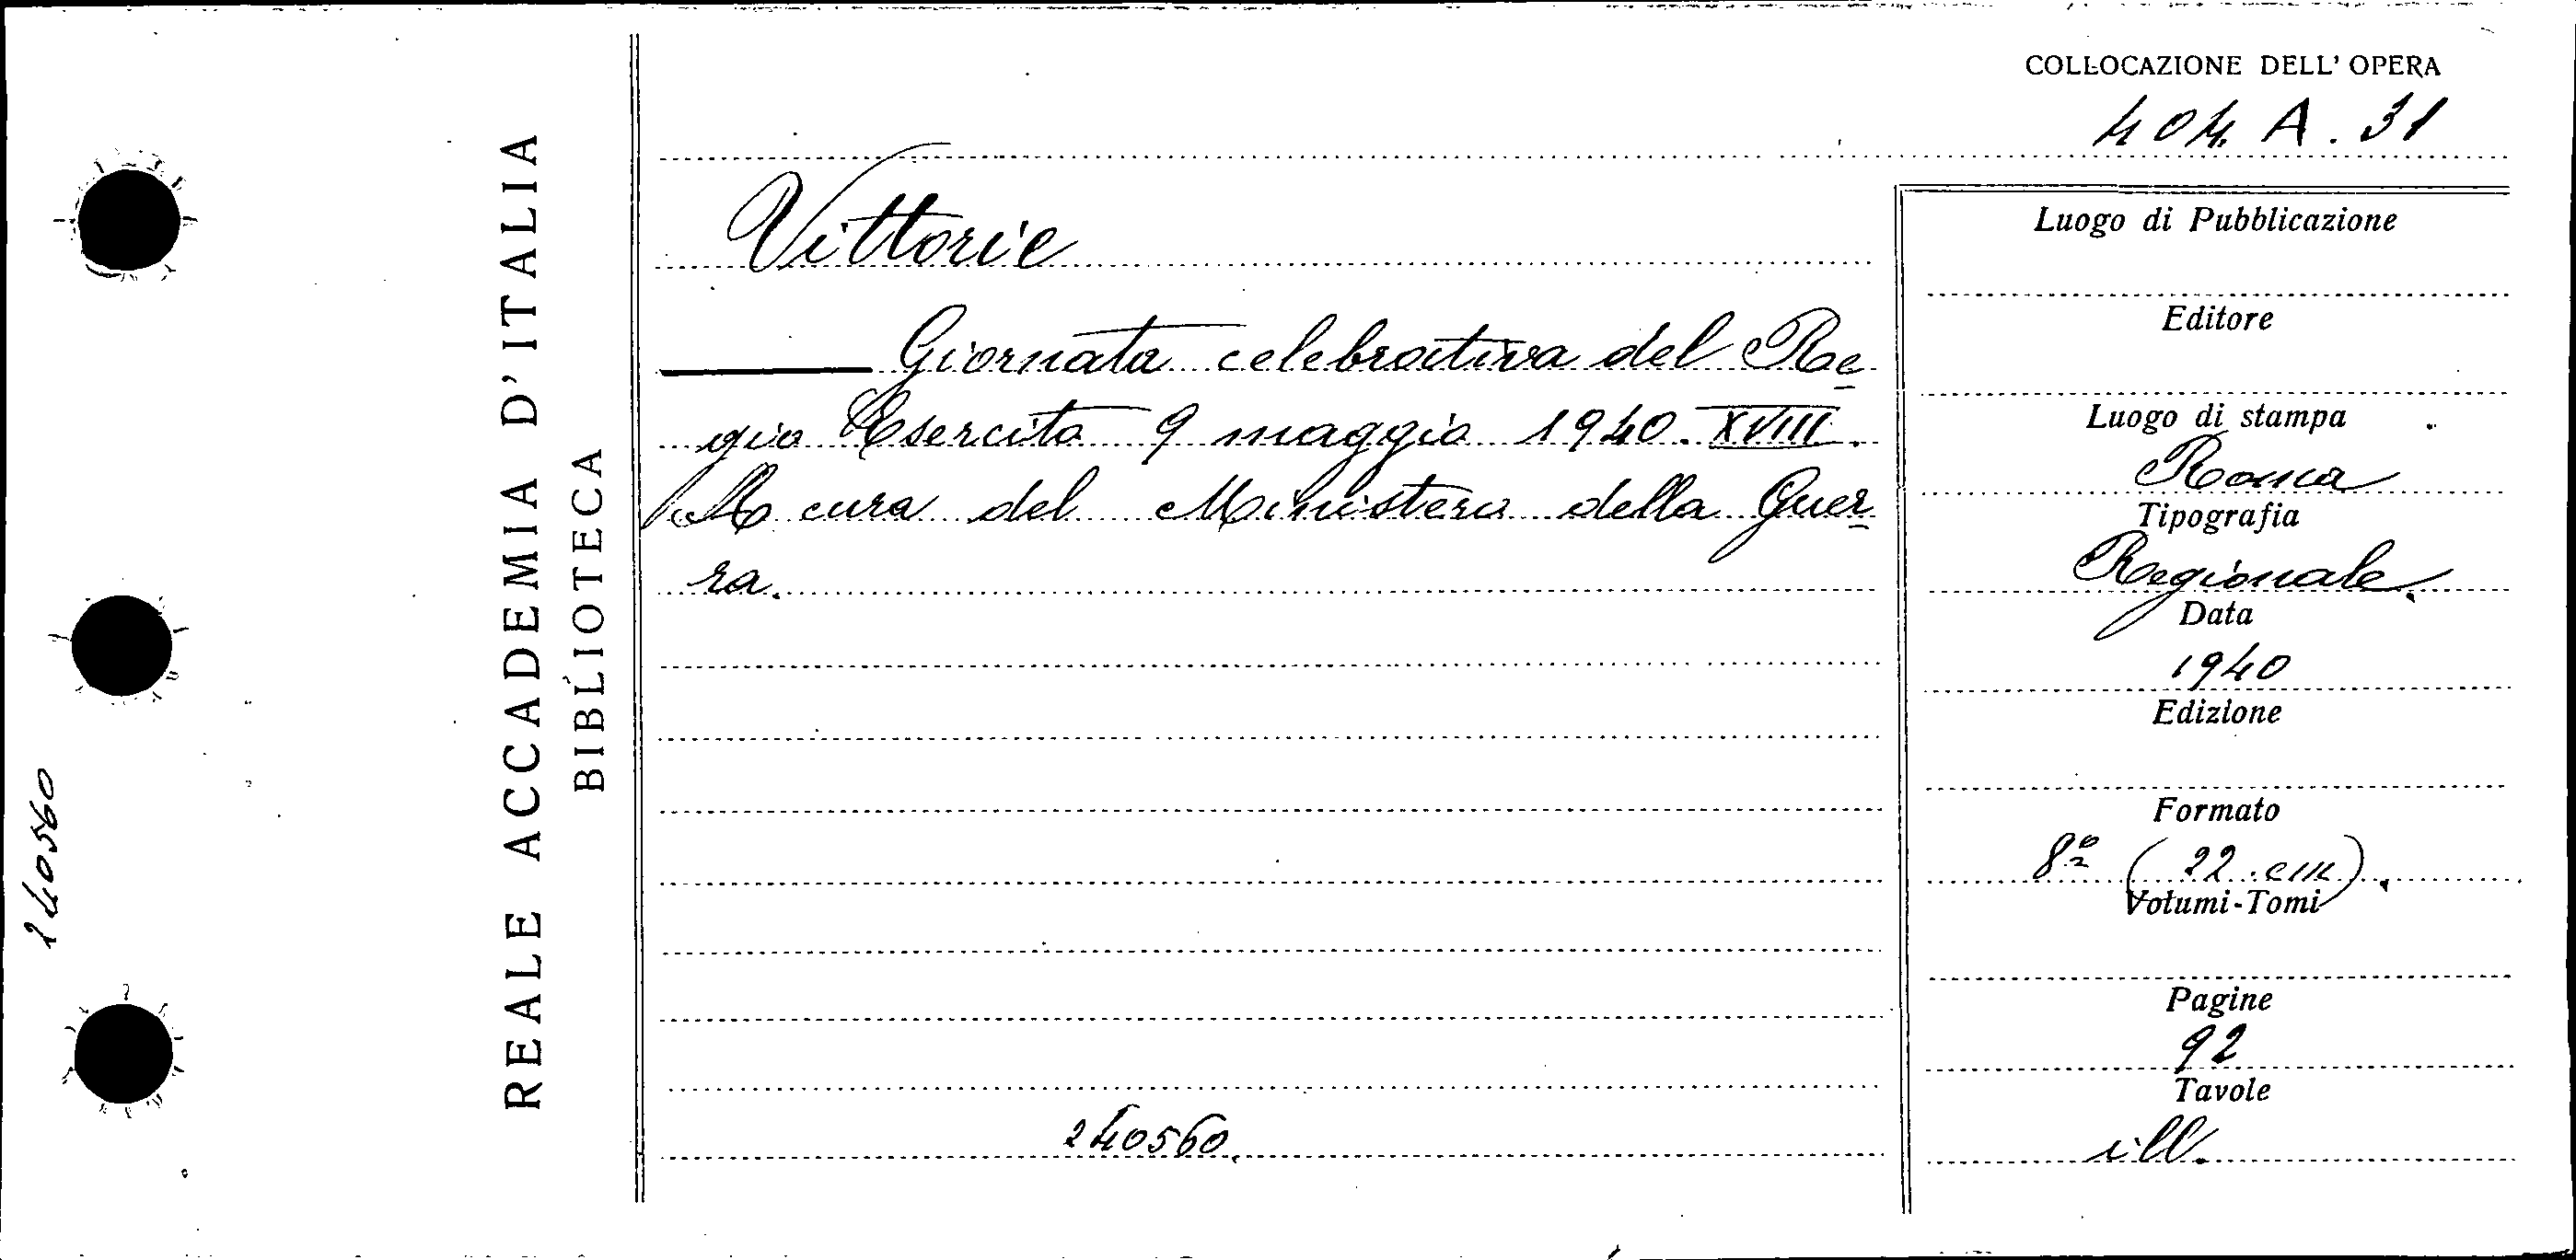 COLLOCAZIONE DELL' OPERA
404. A. 31
REALE ACCADEMIA D'ITALIA
BIBLIOTECA
240560
Vittorie
Giornata celebrativa del Re-
gio Esercito 9 maggio 1940. XVIII.
A cura del Ministero della Guer-
ra.
240560.
Luogo di Pubblicazione
Editore
Luogo di stampa
Roma
Tipografia
Regionale.
Data
1940
Edizione
Formato
8º (22 cm).
Volumi-Tomi
Pagine
92
Tavole
ill.